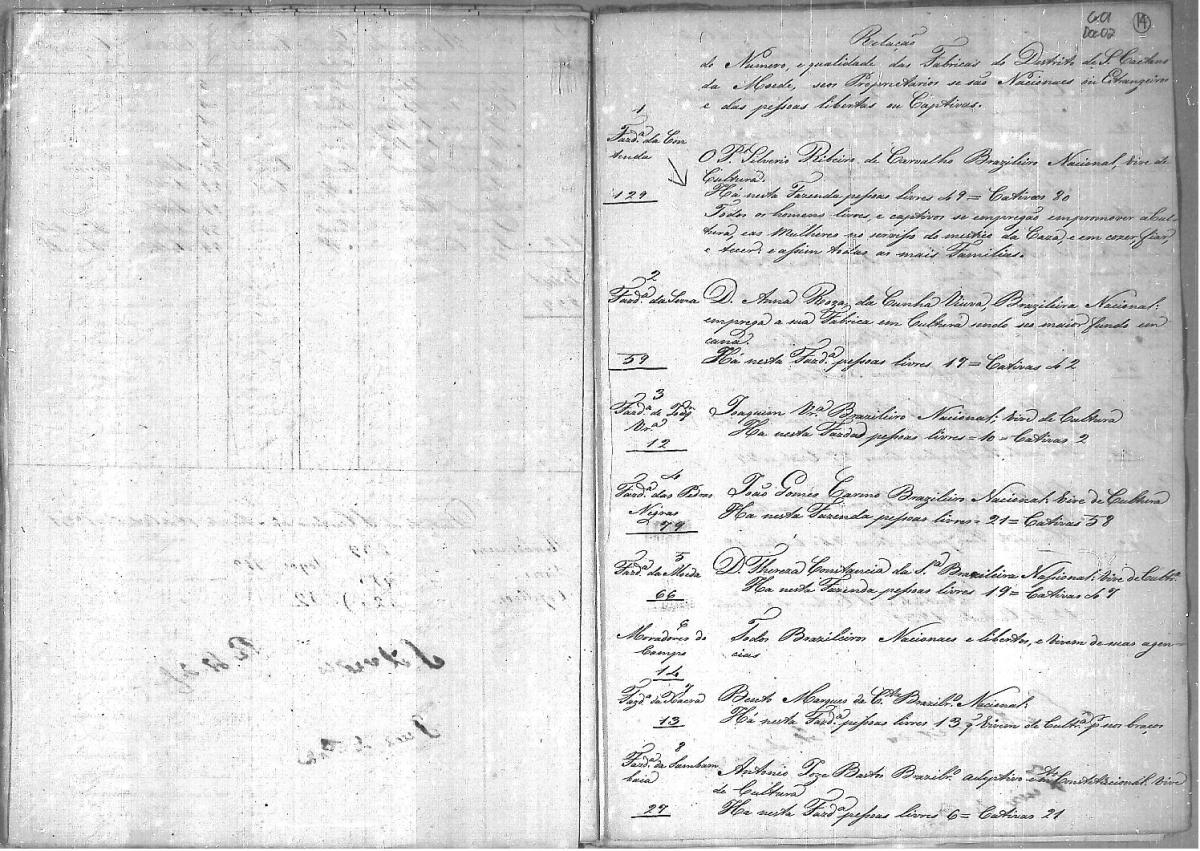 Cx 01
Doc 07
14
Relação
do Numero, e qualidade das Fabricas do Districto de S. Caetano
da Moeda, seos Proprietarios se são Nacionaes ou Estrangeiros
e das pessoas libertas ou Captivas.
1
Fazd.ª da Con
tenda
129
O P.e Silverio Ribeiro de Carvalho Brazileiro Nacional, vive de
Cultura.
Há nesta Fazenda pessoas livres 49 = Cativas 80
Todos os homens livres, e captivos se empregão em promover a Cul
tura, e as Mulheres no serviço domestico da Caza, e em cozer, fiar,
e tecer e assim todas as mais Familias.
2
Fazd.ª da Serra
59
D. Anna Roza da Cunha Viuva, Brazileira Nacional:
emprega a sua Fabrica em Cultura sendo seo maior fundo em
cana.
Há nesta Fazd.ª pessoas livres 17 = Cativas 42
3
Fazd.ª de
Vr.ª
12
Joaquim Vr.ª Brazileiro Nacional; vive de Cultura
Ha nesta Fazda pessoas livres = 10 = Cativas 2
4
Fazd.ª das Pedras
Negras
79
João Gomes Carmo Brazileiro Nacional: vive de Cultura
Ha nesta Fazenda pessoas livres = 21 = Cativas 58
5
Fazd.ª da Moeda
66
D. Thereza Constancia da S.ª Brazileira Nassional: vive de Cultr.ª
Ha nesta Fazenda pessoas livres 19 = Cativas 47
6
Moradores do
Campo
14
Todos Brazileiros Nacionaes e libertos, e vivem de suas agen-
cias
7
Fazd.ª da
13
Bento Marques da C.ta Brazilr.º Nacional:
Há nesta Fazd.ª pessoas livres 13 q vivem de Cult.ª p seos braços
8
Fazd.ª da Sambam
baia
27
Antonio Joze Bastos Brazilr.º adoptivo Constitucional: vive
de Cultura
Ha nesta Fazd.ª pessoas livres 6 = Cativas 21